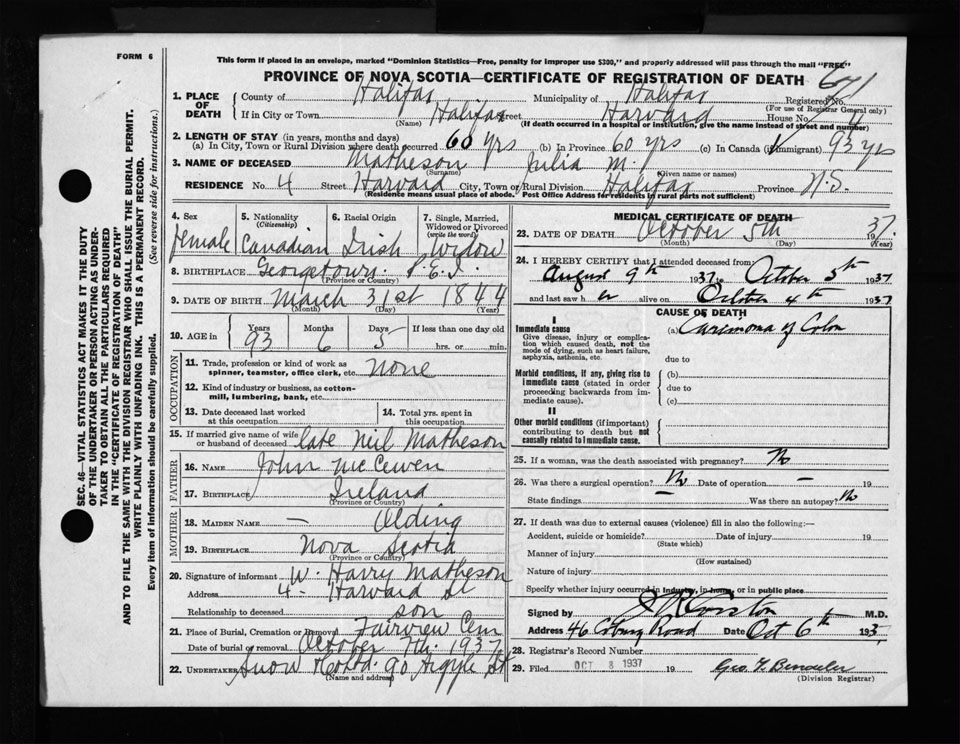 FORM 6
This form if placed in an envelope, marked "Dominion Statistics—Free, penalty for improper use $300," and properly addressed will pass through the mail "FREE"
PROVINCE OF NOVA SCOTIA—CERTIFICATE OF REGISTRATION OF DEATH
671
1. PLACE OF DEATH County of Halifax Municipality of Halifax Registered No.
(For use of Registrar General only)
If in City or Town Halifax Street Harvard House No. 4
(Name) (If death occurred in a hospital or institution, give the name instead of street and number)
2. LENGTH OF STAY (in years, months and days)
(a) In City, Town or Rural Division where death occurred 60 yrs (b) In Province 60 yrs (c) In Canada (if immigrant) 93 yrs
3. NAME OF DECEASED Matheson Julia M.
(Surname) (Given name or names)
RESIDENCE No. 4 Street Harvard City, Town or Rural Division Halifax Province N.S.
(Residence means usual place of abode. Post Office Address for residents in rural parts not sufficient)
4. Sex female
5. Nationality (Citizenship) Canadian
6. Racial Origin Irish
7. Single, Married, Widowed or Divorced (write the word) Widow
8. BIRTHPLACE Georgetown P.E.I.
(Province or Country)
9. DATE OF BIRTH March 31st 1844
(Month) (Day) (Year)
10. AGE in Years 93 Months 6 Days 5 If less than one day old
hrs. or min.
OCCUPATION
11. Trade, profession or kind of work as spinner, teamster, office clerk, etc. None
12. Kind of industry or business, as cotton-mill, lumbering, bank, etc.
13. Date deceased last worked at this occupation
14. Total yrs. spent in this occupation
15. If married give name of wife or husband of deceased late Neil Matheson
FATHER
16. NAME John McEwen
17. BIRTHPLACE Ireland
(Province or Country)
MOTHER
18. MAIDEN NAME — Olding
19. BIRTHPLACE Nova Scotia
(Province or Country)
20. Signature of informant W. Harry Matheson
Address 4 - Harvard St
Relationship to deceased son
21. Place of Burial, Cremation or Removal Fairview Cem
Date of burial or removal October 7th 1937
22. UNDERTAKER Snow 90 Argyle St
(Name and address)
MEDICAL CERTIFICATE OF DEATH
23. DATE OF DEATH October 5th 1937
(Month) (Day) (Year)
24. I HEREBY CERTIFY that I attended deceased from:
August 9th 1937 to October 5th 1937
and last saw her alive on October 4th 1937
CAUSE OF DEATH
I
Immediate cause
Give disease, injury or complication which caused death, not the mode of dying, such as heart failure, asphyxia, asthenia, etc.
(a) Carcinoma of Colon
due to
Morbid conditions, if any, giving rise to immediate cause (stated in order proceeding backwards from immediate cause).
(b)
due to
(c)
II
Other morbid conditions (if important) contributing to death but not causally related to immediate cause.
25. If a woman, was the death associated with pregnancy? No
26. Was there a surgical operation? No Date of operation — 19
State findings — Was there an autopsy? No
27. If death was due to external causes (violence) fill in also the following:—
Accident, suicide or homicide? Date of injury 19
(State which)
Manner of injury
(How sustained)
Nature of injury
Specify whether injury occurred in industry, in home, or in public place
Signed by M.D.
Address 46 Coburg Road Date Oct 6th 193
28. Registrar's Record Number
29. Filed OCT 8 1937 19
(Division Registrar)
SEC. 46—VITAL STATISTICS ACT MAKES IT THE DUTY
OF THE UNDERTAKER OR PERSON ACTING AS UNDER-
TAKER TO OBTAIN ALL THE PARTICULARS REQUIRED
IN THE "CERTIFICATE OF REGISTRATION OF DEATH"
AND TO FILE THE SAME WITH THE DIVISION REGISTRAR WHO SHALL ISSUE THE BURIAL PERMIT.
WRITE PLAINLY WITH UNFADING INK. THIS IS A PERMANENT RECORD.
Every item of information should be carefully supplied. (See reverse side for instructions.)